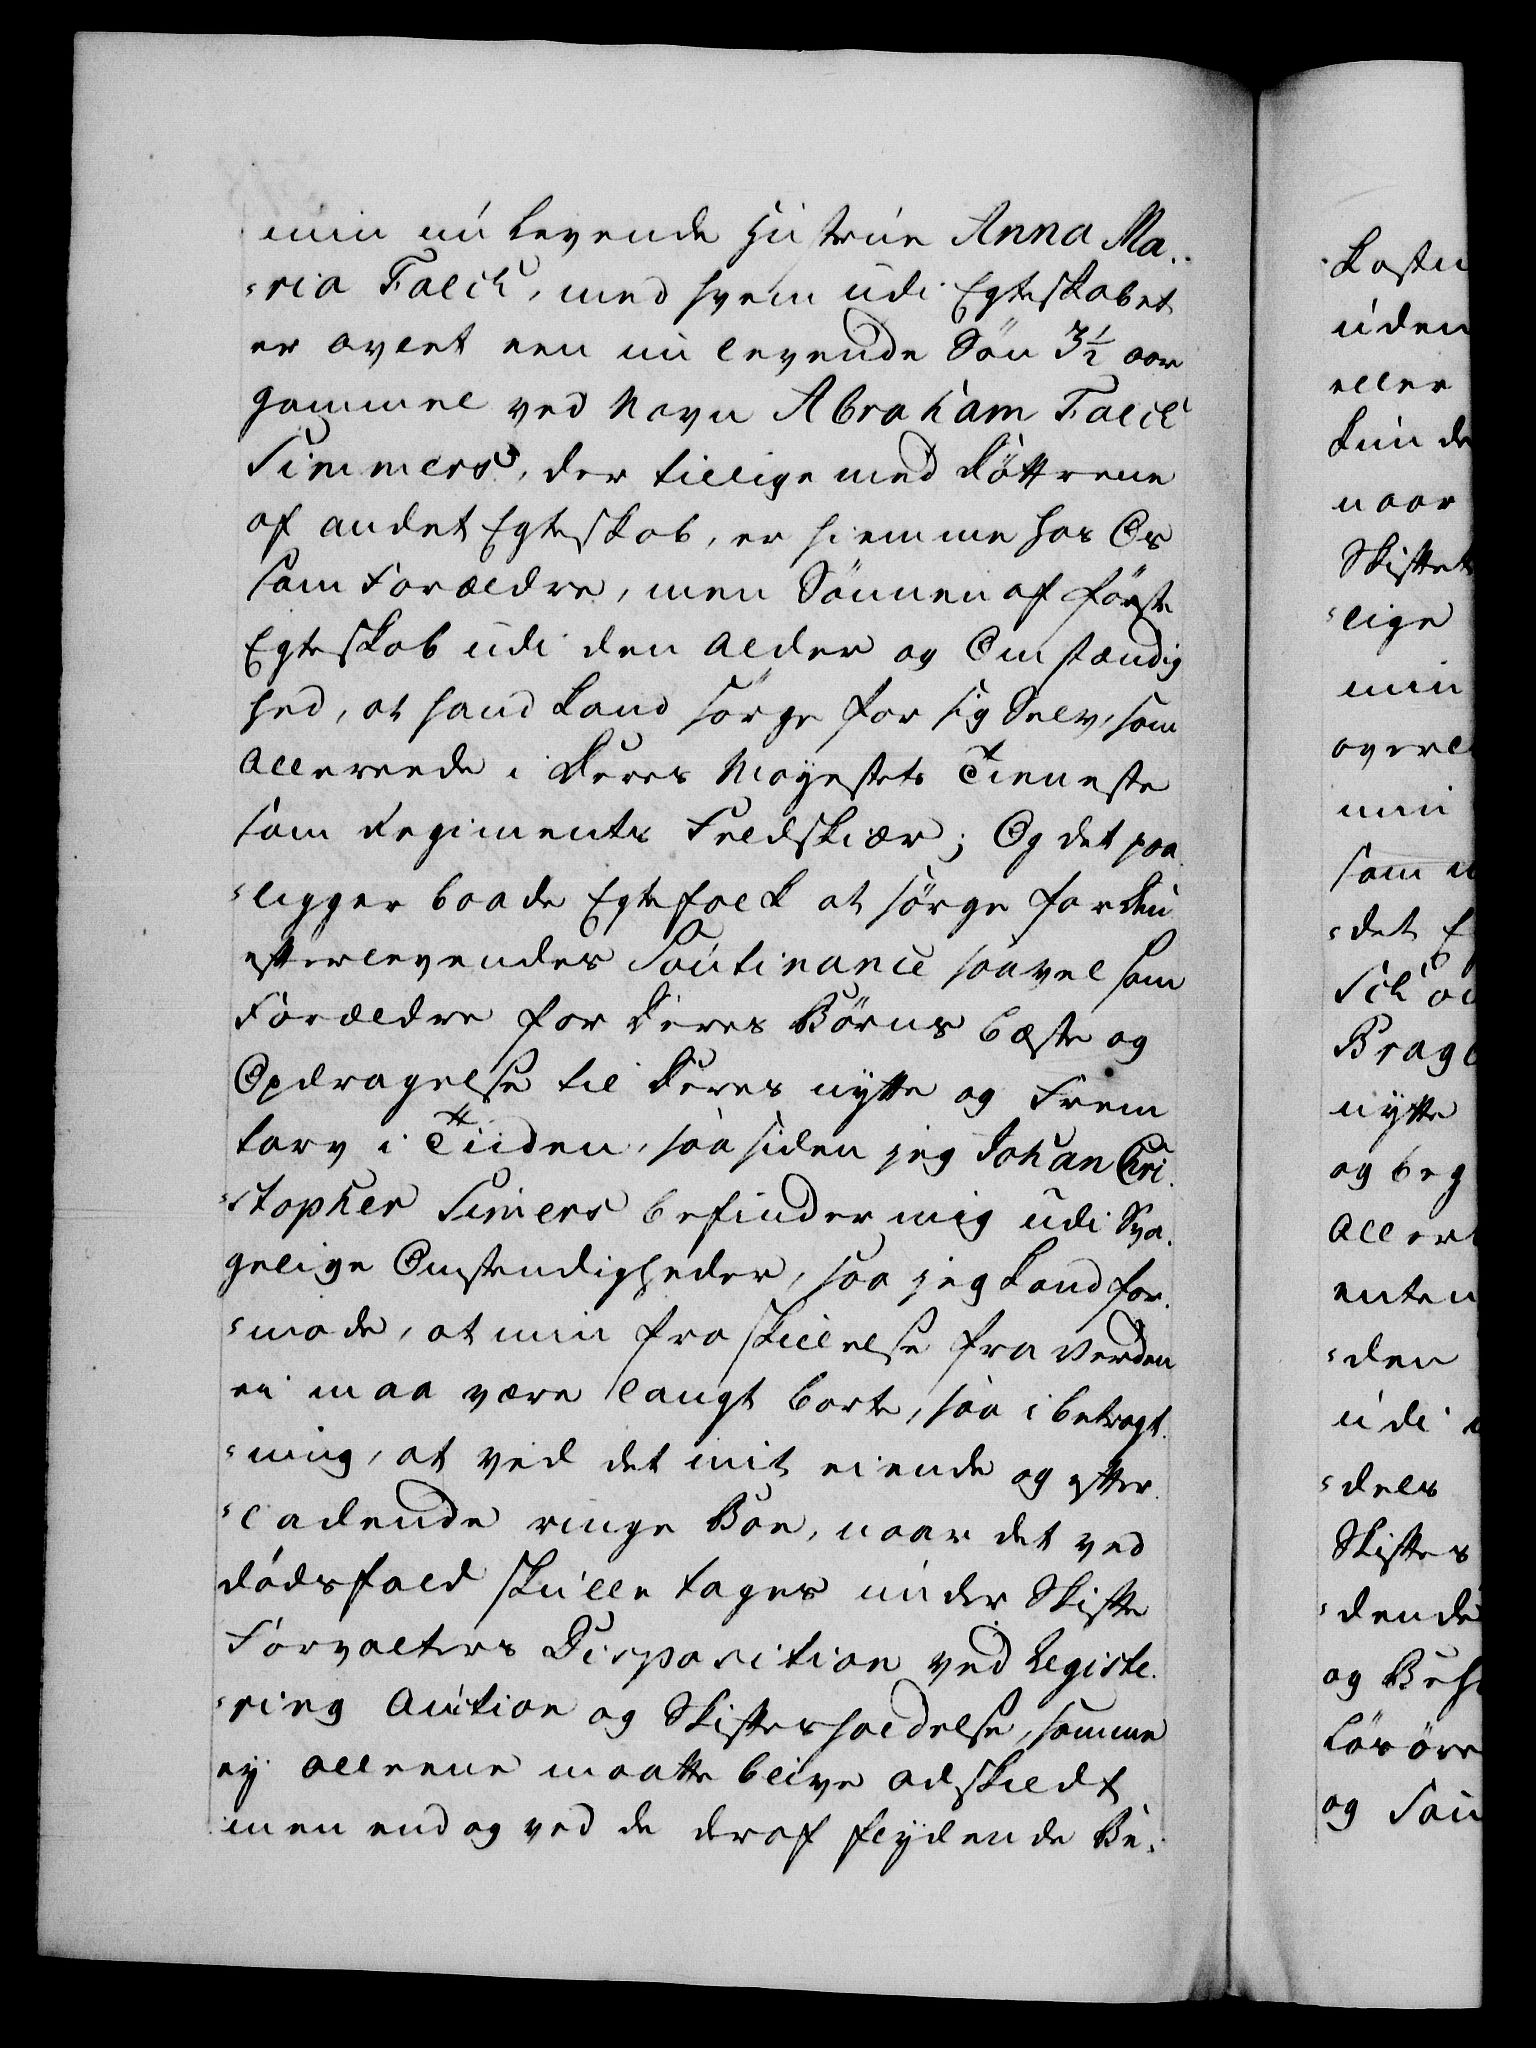 min nú levende Hústrúe Anna Ma-
-ria Falch, med hvem udi Egteskabet
er avlet een nú levende Sön 3½ aar
gammel ved Navn Abraham Falch
Simmers, der tillige med Döttrene
af andet Egteskab, er hiemme hos Os
som Forældre, men Sönnen af förste
Egteskab udi den Alder og Omstændig
hed, at hand kand sörge for sig Selv, som
Allereede i Deres Mayestets Tieneste
som Regiments Feldskiær; Og det paa-
-ligger baade Egtefolk at sörge for den
efterlevendes Soutinance saavel som
Forældre for Deres Börns bæste og
Opdragelse til Deres nytte og Frem
tarv i Tiiden, saa siden jeg Johan Chri-
-stopher Simers befinder mig udi Sva-
gelige Omstendigheder, saa jeg kand for-
-mode, at min fraskillelse fra Verden
ei maa være langt borte, saa i betragt-
-ning, at ved det mit eiende og efter-
-ladende ringe Boe, naar det ved
dödsfald skulle tages under Skifte
Forvalters Disposition ved Registe-
-ring Auction og Skiftesholdelse, samme
ey alleene maatte blive adskildt
men endog ved de deraf flydende Be-
Kostn
uden
eller
kun de
naar
Skiftet
-lige
min
overl
min
som u
-det E
Scho
Brage
nytte
og beg
Aller
enten
-den
udi
-dels
Skiftes
-dende
og Beh
Lösöre
og Sou